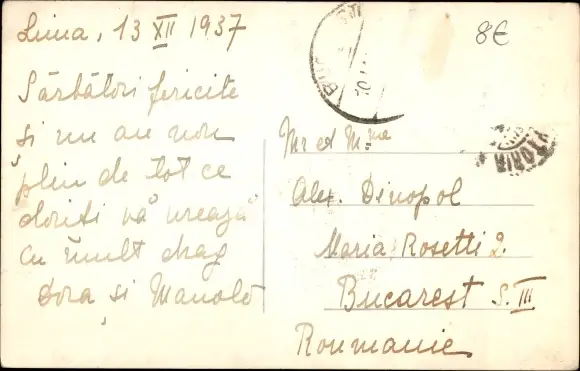 Lima, 13 XII 1937
Sărbători fericite
și un an nou
plin de tot ce
doriți vă urează
cu mult drag
Dora și Manolo
8€
Mr et Mme
Alex. Dinopol
Maria Rosetti 2.
Bucarest S. III
Roumanie